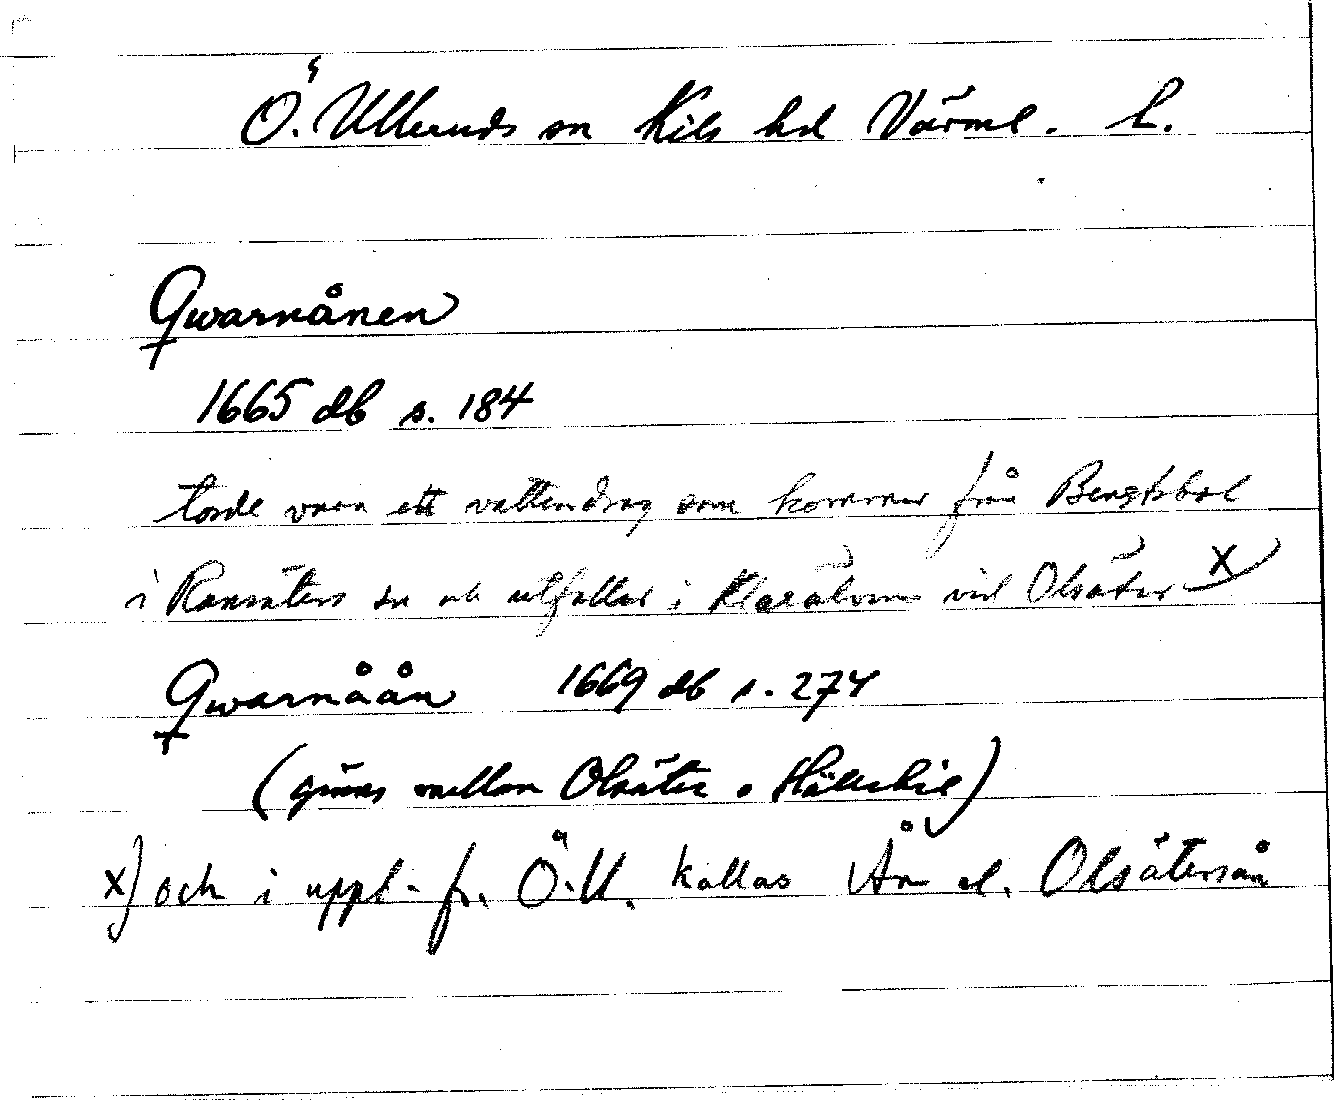 Ö. Ulleruds sn Kils hd Värml. L.
Qwarnånen
1665 db s. 184
torde vara ett vattendrag som kommer från Bengtsbol
i Ransäters sn och utfaller i Klarälven vid Olsäter x)
Qwarnåån 1669 db s. 274
(gräns mellan Olsäter o Hällekil)
x) och i uppt. fr. Ö.U. kallas Ån el. Olsätersån